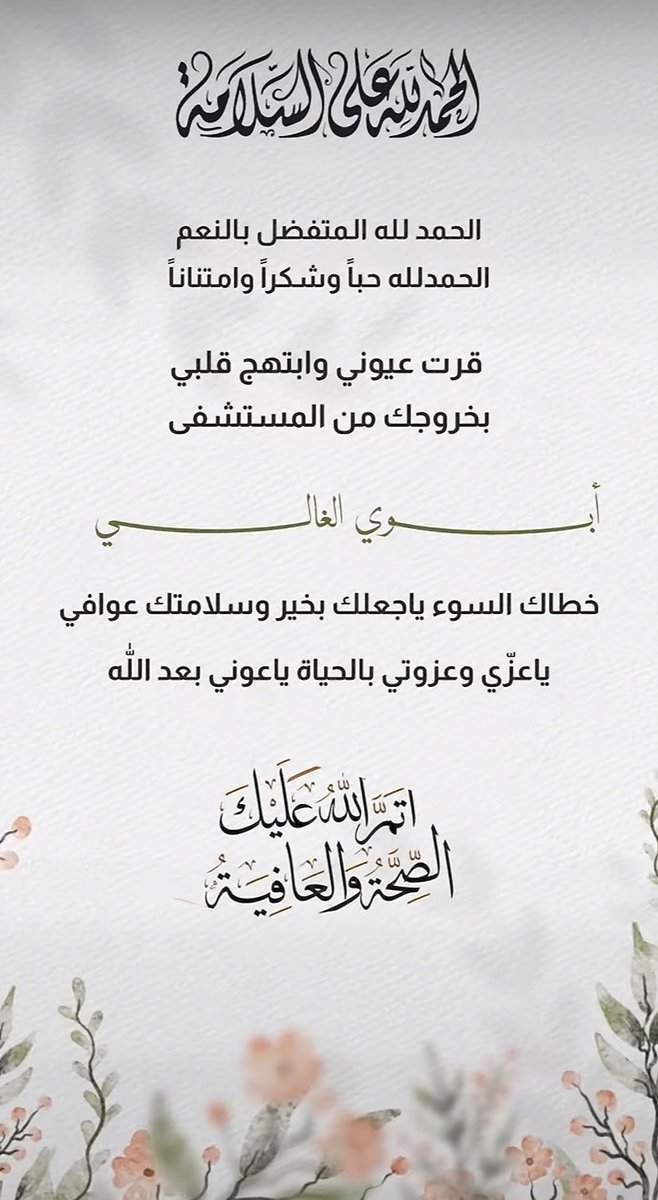 الحمد لله على السلامة
الحمد لله المتفضل بالنعم
الحمدلله حباً وشكراً وامتناناً
قرت عيوني وابتهج قلبي
بخروجك من المستشفى
أبـــوي الغالـــي
خطاك السوء ياجعلك بخير وسلامتك عوافي
ياعزّي وعزوتي بالحياة ياعوني بعد الله
اتمَّ اللهُ عَلَيكَ
الصِّحَّةُ وَالعَافِيَةُ